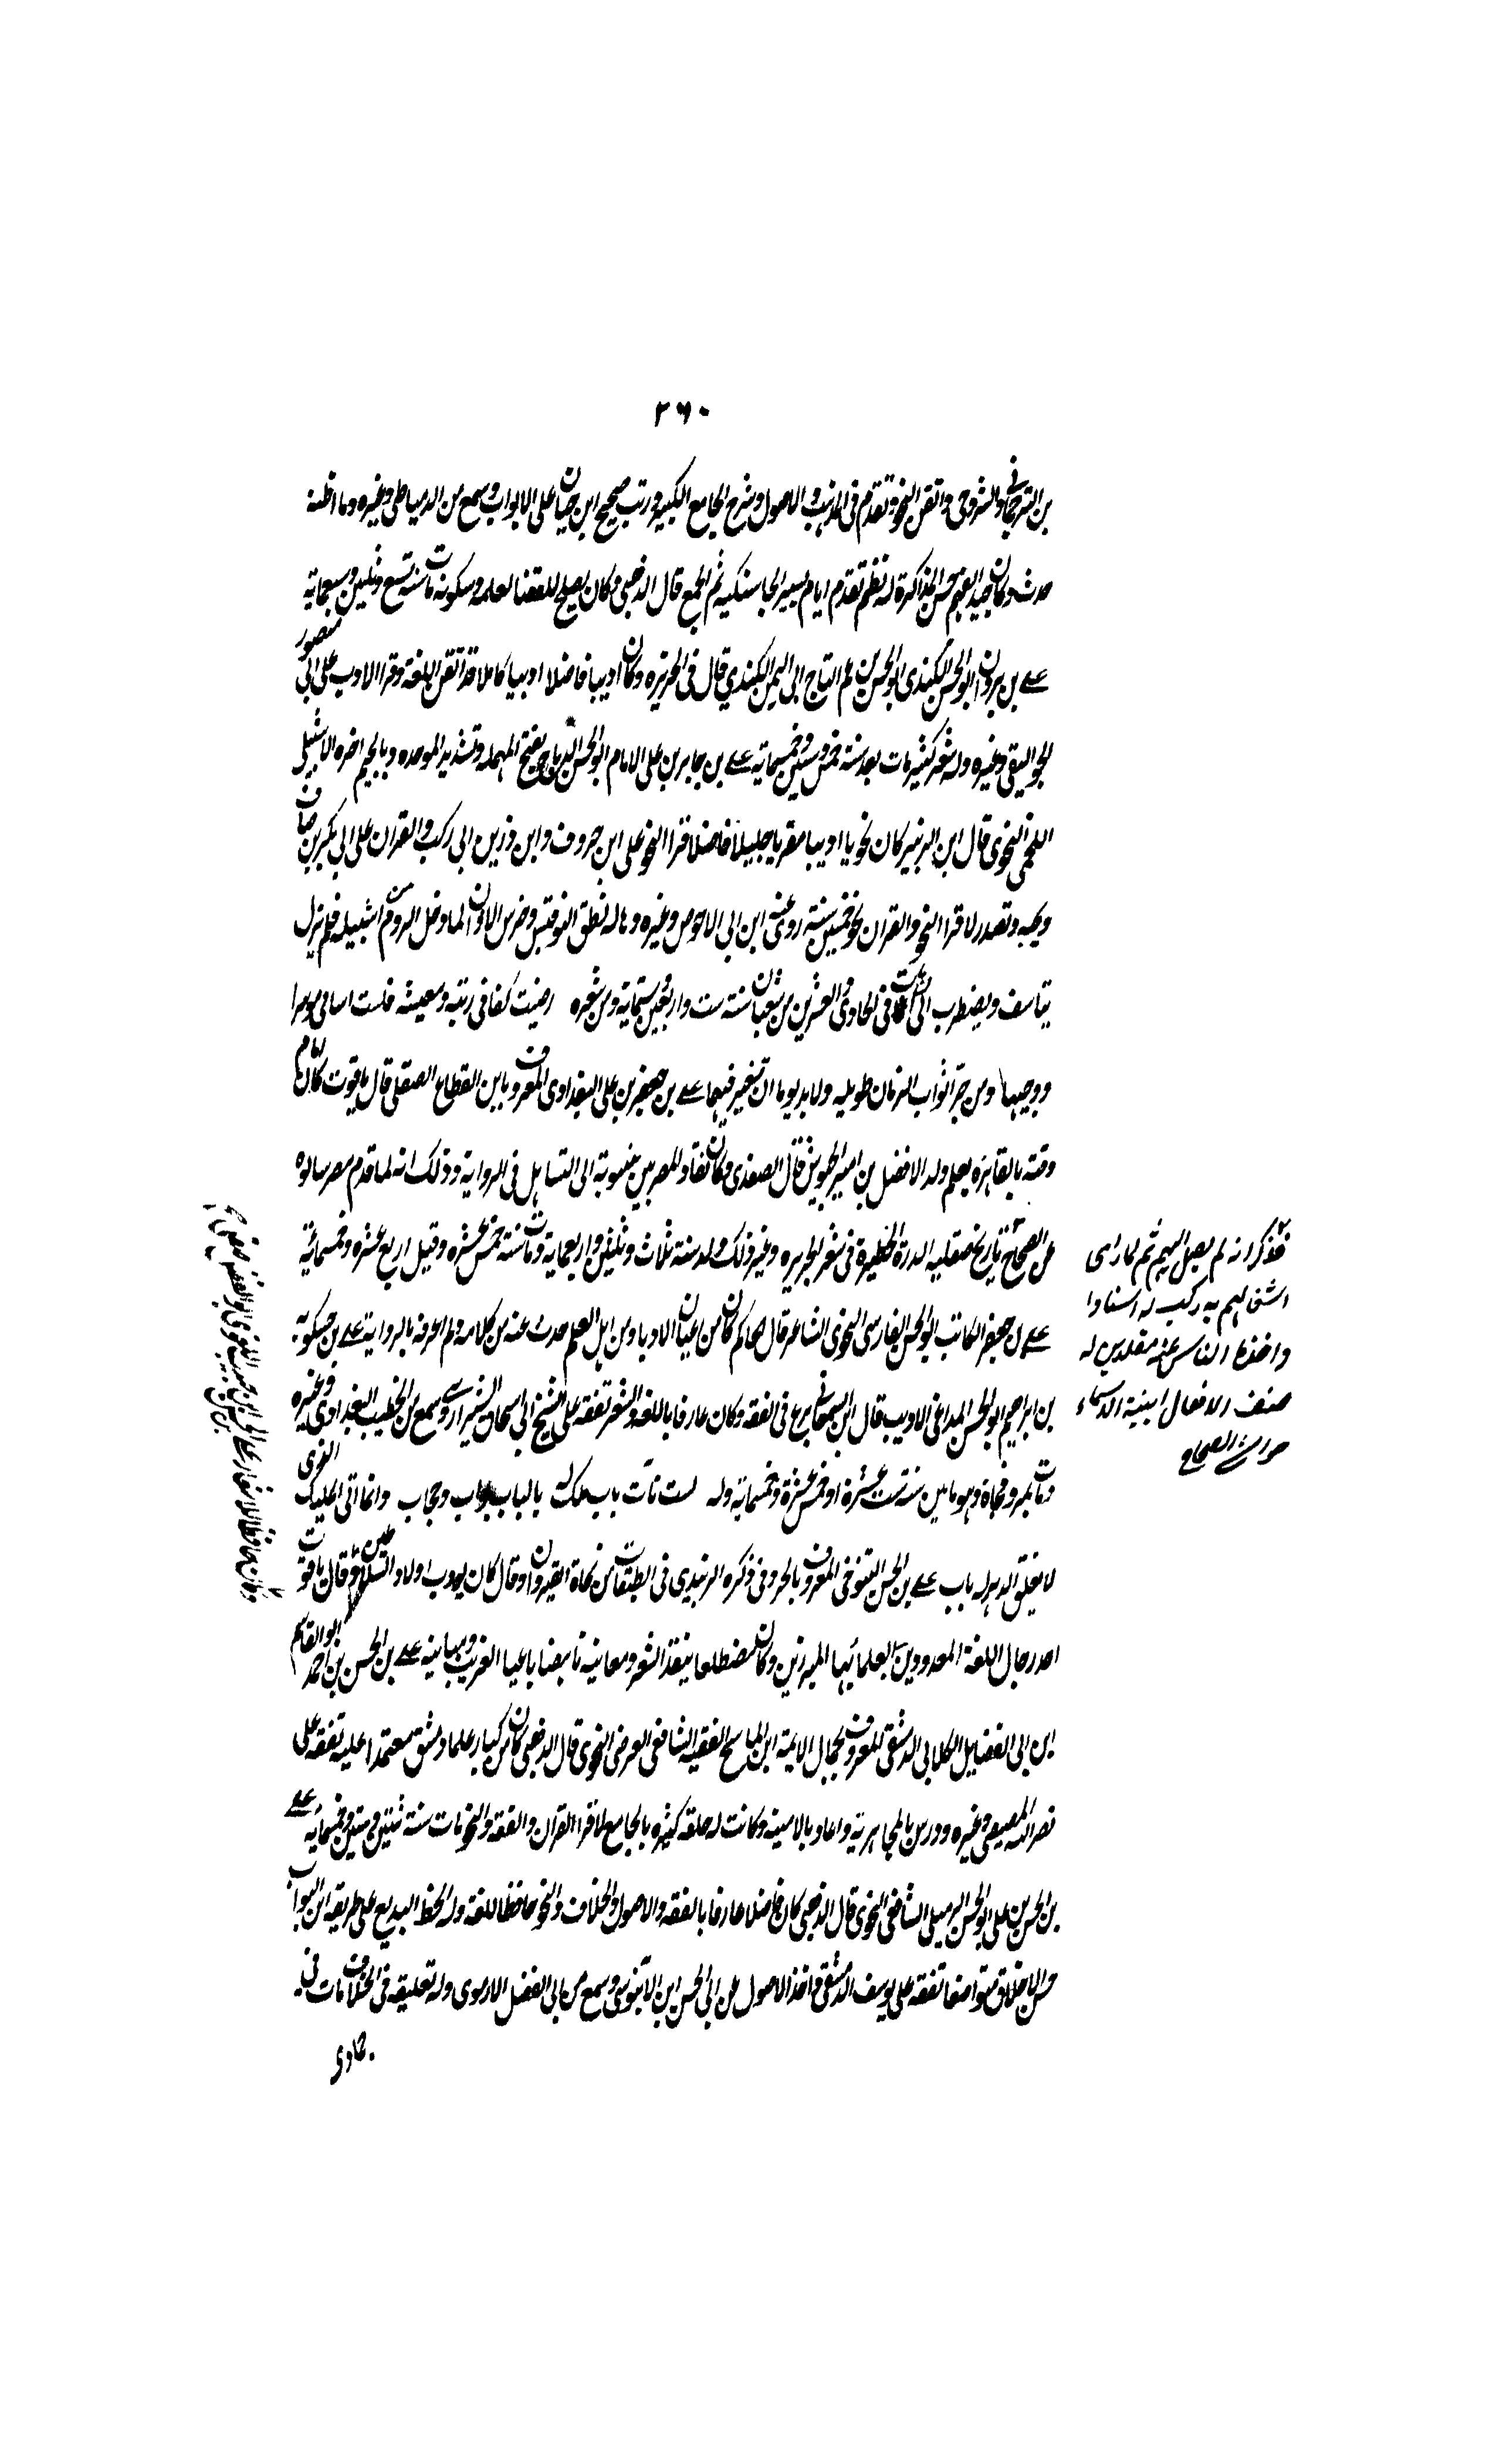 ٢٦٠
بن التركماني والسروجي واتقن النحو وتقدم في المذهب والاصول وشرح الجامع الكبير ورتب صحيح ابن حبان على الابواب وسمع من الدمياطي وغيره وما اظنه
حدث وكان جيد الفهم حسن المذاكرة له نظم تقدم ايام بيبرس الجاشنكير ثم الجمع قال الذهبي وكان يصلح للقضا لعلمه وسكونه مات سنة تسع وثلثين وسبعماية
علي بن ثروان ابو الحسن الكندي ابو الحسن بن عم التاج ابي اليمن الكندي قال في الخريدة وكان اديبا فاضلا اديبا كاملا قد اتقن اللغة وقرا الادب على ابي منصور
الجواليقي وغيره وله شعر كثير مات بعد سنة خمس وستين وخمسماية علي بن جابر بن علي الامام ابو الحسن الدباج بفتح المهملة وتشديد الموحده وبالجيم اخره الاشبيلي
اللخمي النحوي قال ابن الزبير كان نحويا اديبا مقريا جليلا فاضلا قرا النحو على ابن خروف وابي ذر بن ابي ركب والقران على ابي بكر بن صاف
وصحبه وتصدر لاقرا النحو والقران نحو خمسين سنة روى عنه ابن ابي الاحوص وغيره وهاله نطق النواقيس وخرس الاذان لما دخل الروم اشبيليه فلم يزل
يتاسف ويضطرب الى ان مات في الحادي والعشرين من شعبان سنة ست واربعين وستماية ومن شعره رضيت كفافي رتبه ومعيشه فلست اسامي موسرا
ووجيها ومن جر اثواب الزمان طويله ولا بد يوما ان تعثر فيها علي بن جعفر بن علي البغدادي المعروف بابن القطاع الصقلي قال ياقوت كان امام
وقته بالقاهرة يعلم ولد الافضل بن امير الجيوش قال الصفدي وكان نقاد المصريين ينسبونه الى التساهل في الرواية وذلك انه لما قدم مصر سالوه
عن الصحاح تاريخ صقليه الدرة الخطيرة في شعر الجزيره وغير ذلك ولد سنة ثلاث وثلثين واربعماية ومات سنة خمس عشره وقيل اربع عشره وخمسمائة
علي بن جعفر الكاتب ابو الحسن الفارسي النحوي الشاعر قال الحاكم كان من اعيان الادبا ومن اهل العلم حدث عنه من كلامه ولم اعرفه بالرواية علي بن حسكويه
بن ابراهيم ابو الحسن المراغي الاديب قال ابن السمعاني برع في الفقه وكان عارفا باللغة والشعر تفقه على الشيخ ابي اسحاق الشيرازي وسمع من الخطيب البغدادي وغيره
ومات بمرو فجاة وهو ما بين سنة ست عشرة او خمس عشرة وخمسماية وله لست تات باب ملك بالباب بواب وحجاب وانما اتى المليك الذي
لا يغلق الدهر له باب علي بن الحسن التنوخي المعروف بالحروفي ذكره الزبيدي في الطبقات من نحاة القيروان وقال كان يودب اولاد السلاطين وقال ياقوت
احد رجال اللغة المعدودين والعلماء بها المبرزين وكان مضطلعا بنقد الشعر ومعانيه ناهضا باعبا الغريب ومبانيه علي بن الحسن بن احمد ابو القاسم
ابن ابي الفضايل الكلابي الدمشقي المعروف بجمال الايمة ابن الماسح الفقيه الشافعي الفرضي النحوي قال الذهبي كان من كبار علما دمشق معتمدا عليه تفقه على
نصر الله المصيصي وغيره ودرس بالمجاهدية واعاد بالامينية وكانت له حلقه كبيره بالجامع لاقرا القران والفقه والنحو مات سنة ثنتين وستين وخمسمائة علي
بن الحسن بن علي ابو الحسن الرميلي الشافعي النحوي قال الذهبي كان فاضلا عارفا بالفقه والاصول والخلاف والنحو حافظا للغة وله الخط البديع على طريقة ابن البواب
حسن الاخلاق متواضعا تفقه على يوسف الدمشقي واخذ الاصول عن ابي الحسن ابن الابنوسي وسمع من ابي الفضل الارموي وله تعليقه في الخلاف مات في
جمادى
فذكر انه لم يصل اليهم ثم لما راى
اشتغالهم به ركب له اسنادا
واخذه الناس عنه مقلدين له
صنف الافعال ابنية الاسماء
حواشي الصحاح